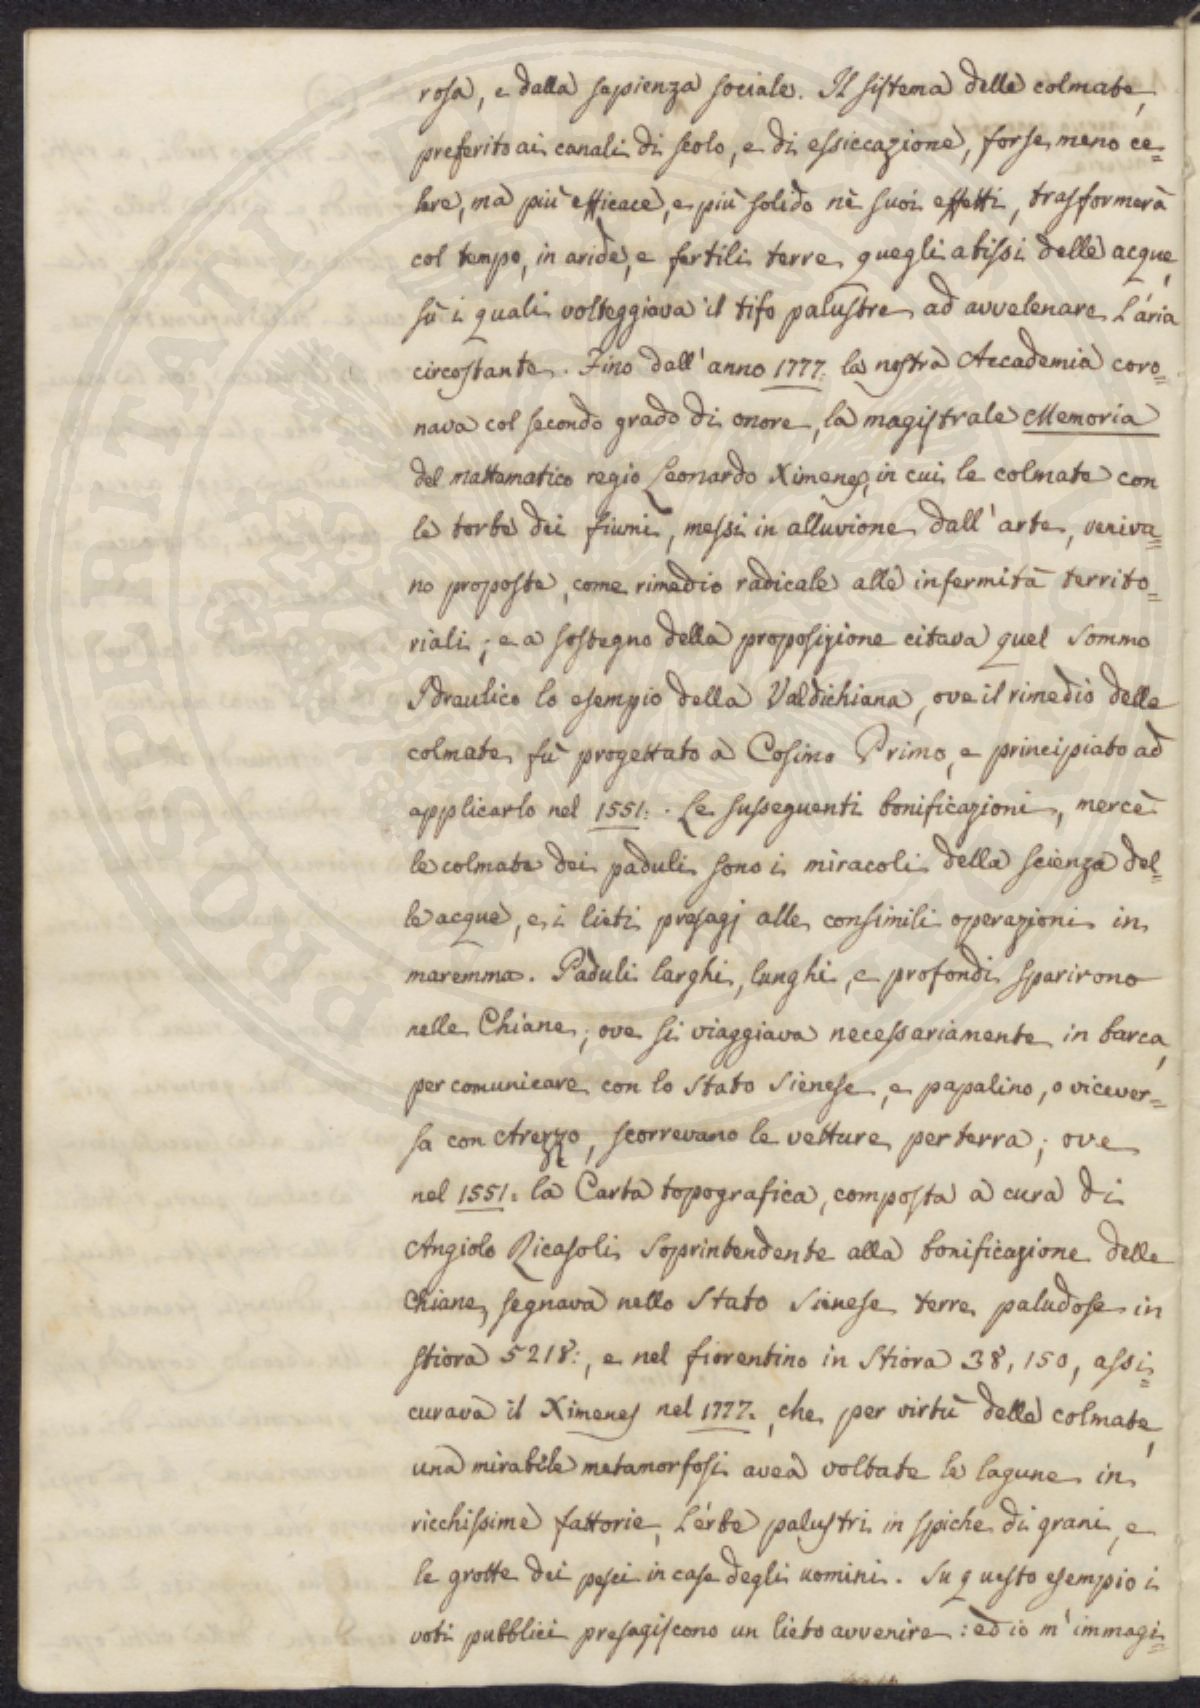 rosa, e dalla sapienza sociale. Il sistema delle colmate,
preferito ai canali di scolo, e di essiccazione, forse meno ce=
lere, ma più efficace, e più solido nè suoi effetti, trasformerà
col tempo, in aride, e fertili terre quegli abissi delle acque,
sù i quali volteggiava il tifo palustre ad avvelenare l'aria
circostante. Fino dall'anno 1777. la nostra Accademia coro=
nava col secondo grado di onore, la magistrale Memoria
del mattematico regio Leonardo Ximenes, in cui le colmate con
le torbe dei fiumi, messi in alluvione dall'arte, veniva=
no proposte, come rimedio radicale alle infermità territo=
riali; e a sostegno della proposizione citava quel sommo
Idraulico lo esempio della Valdichiana, ove il rimedio delle
colmate fù progettato a Cosimo Primo, e principiato ad
applicarlo nel 1551:. Le susseguenti bonificazioni, mercè
le colmate dei paduli sono i miracoli della scienza del=
le acque, e i lieti presagj alle consimili operazioni in
maremma. Paduli larghi, lunghi, e profondi sparirono
nelle Chiane; ove si viaggiava necessariamente in barca,
per comunicare con lo Stato Sienese, e papalino, o vicever=
sa con Arezzo, scorrevano le vetture per terra; ove
nel 1551. la Carta topografica, composta a cura di
Angiolo Ricasoli Soprintendente alla bonificazione delle
Chiane, segnava nello Stato Sienese terre paludose in
stiora 5218:, e nel fiorentino in Stiora 38,150, assi=
curava il Ximenes nel 1777., che per virtù delle colmate,
una mirabile metamorfosi avea voltate le lagune in
ricchissime fattorie, l'erbe palustri in spiche di grani, e
le grotte dei pesci in case degli uomini. Su questo esempio i
voti pubblici presagiscono un lieto avvenire: ed io m'immagi=
PROSPERITATI PUBLI